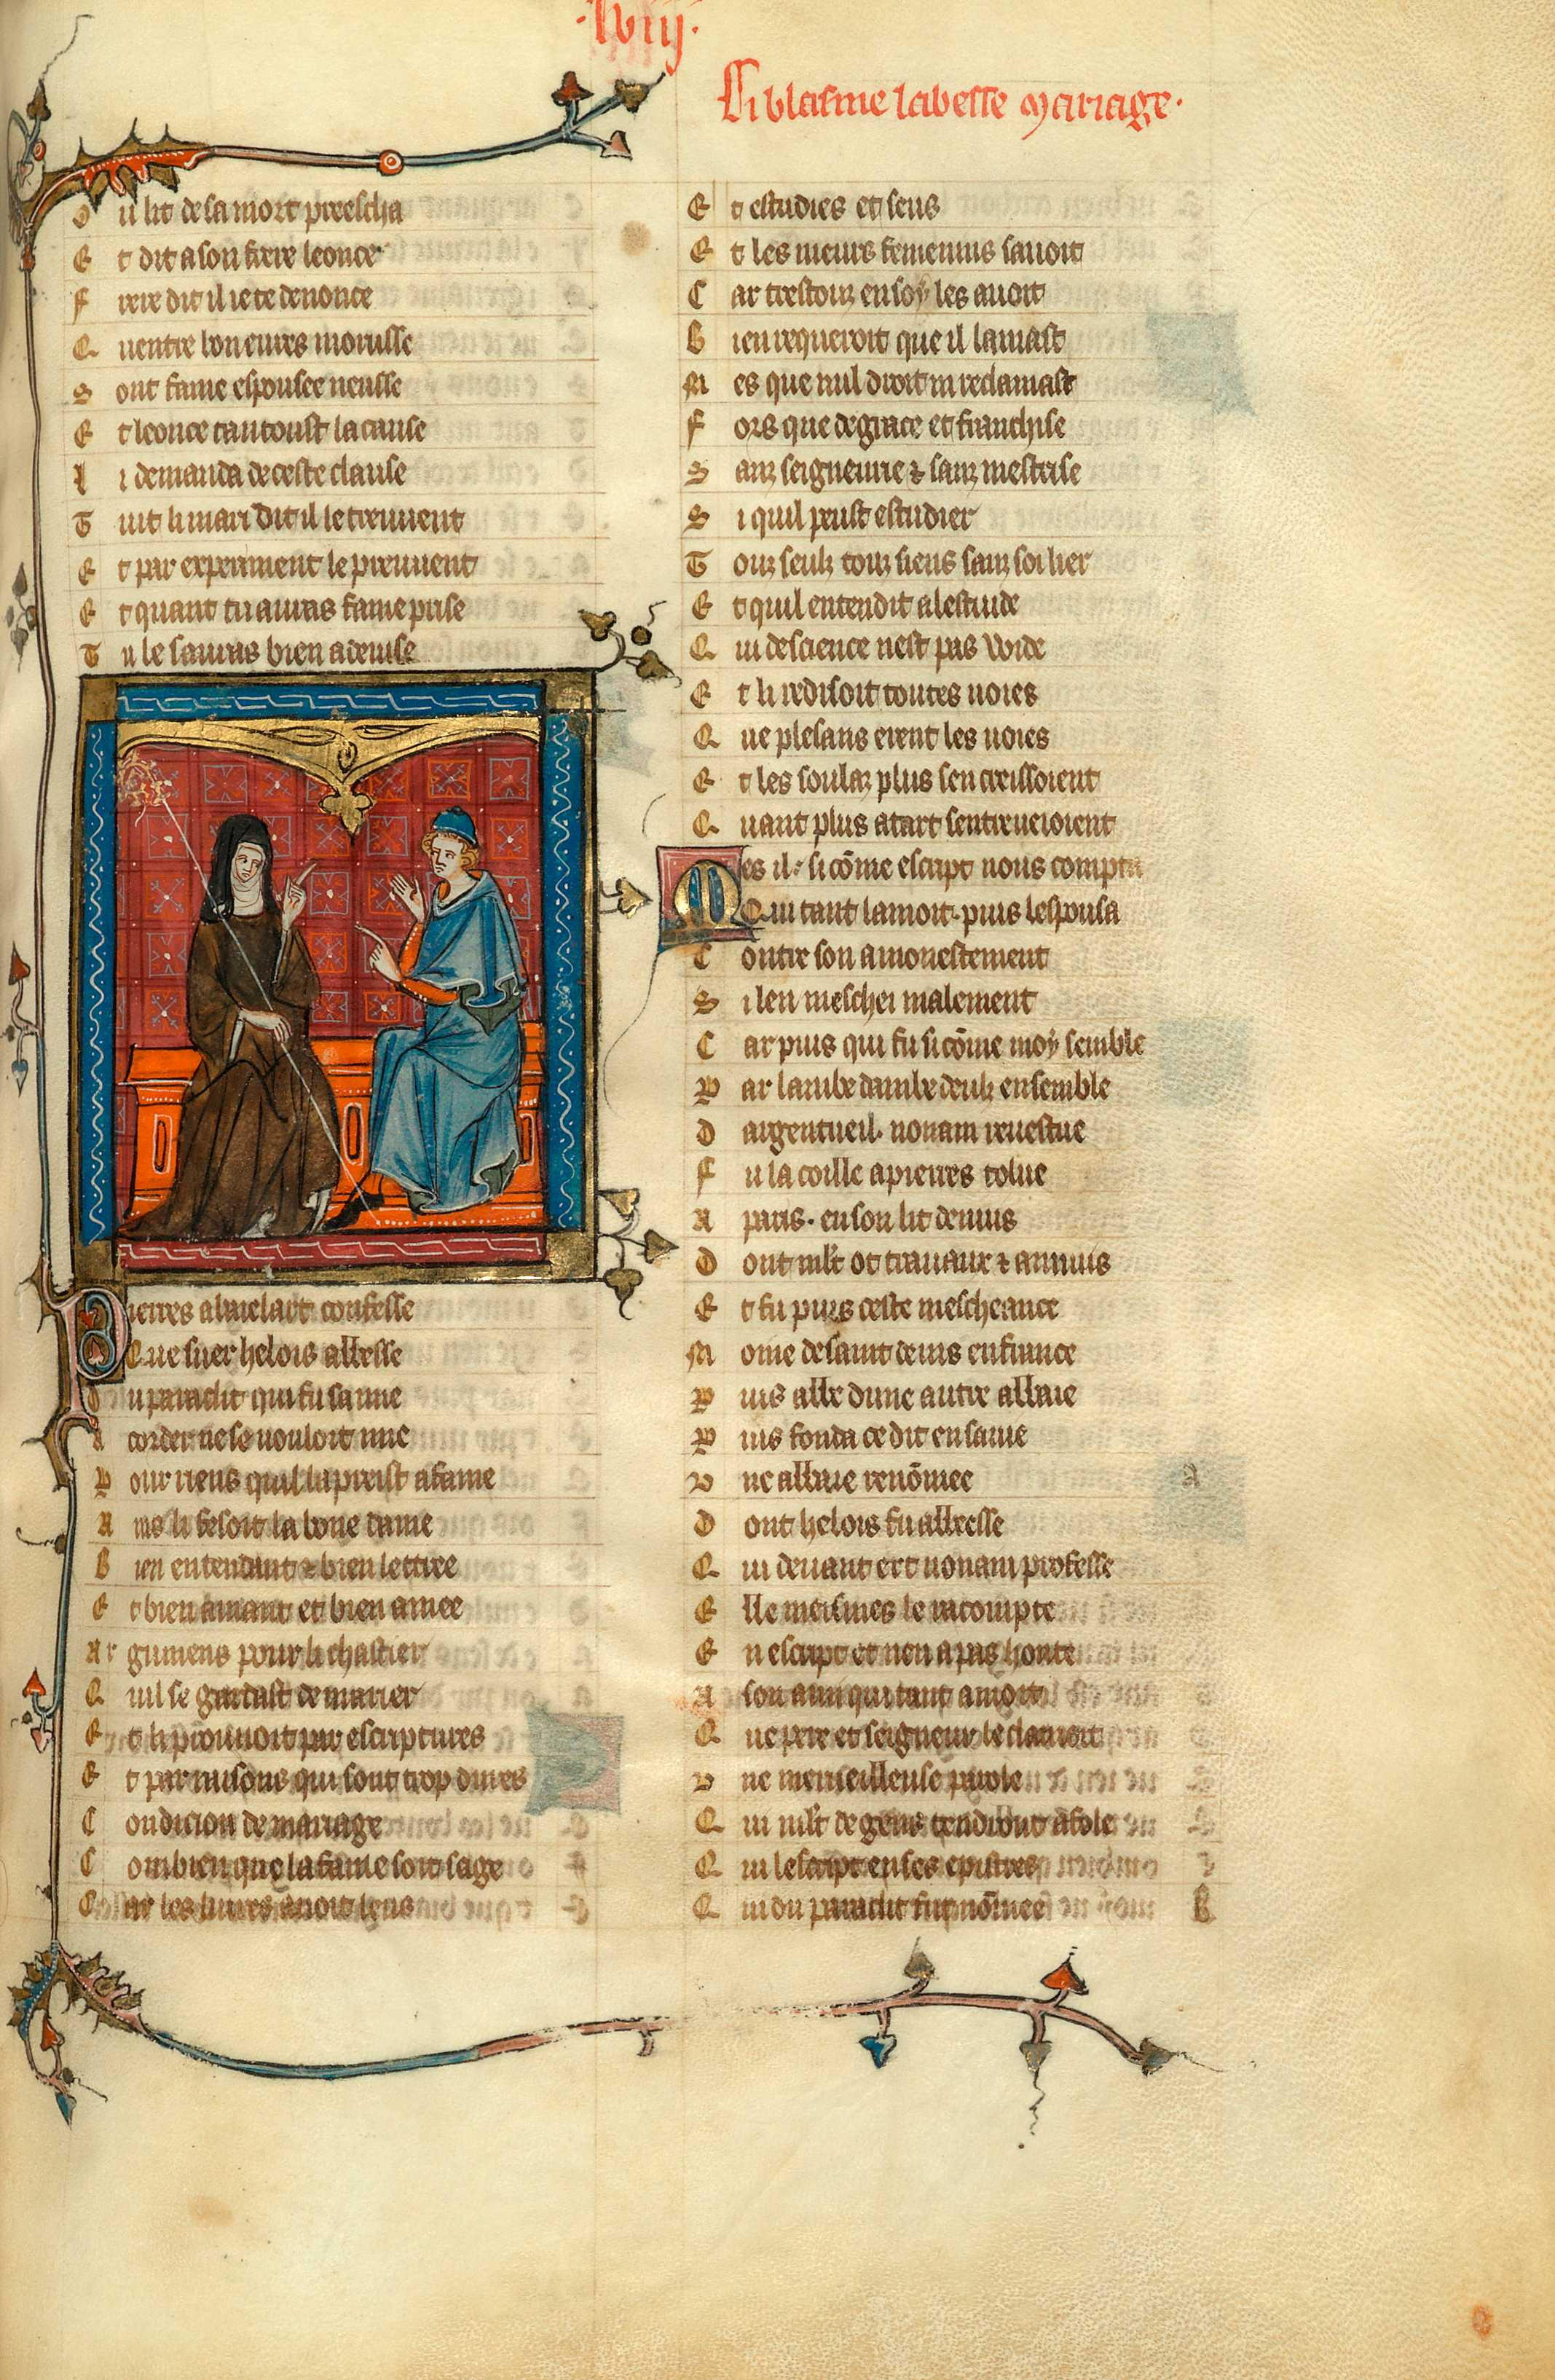 .lviij.
Ci blasme labesse mariage.
O u lit de sa mort preescha
E t dit a son frere leonce
F rere dit il ie te denonce
Q uentre bon eures morusse
S ont fame espousee neusse
E t leonce tantoust la cause
L i demanda de ceste clause
T uit li mari dit il le treuuent
E t par experiment le preuuent
E t quant tu auras fame prise
T u le sauras bien a deuise
P ierres abaielart confesse
Q ue suer helois abbesse
D u paraclit qui fu samie
A corder ne se vouloit mie
P our riens quil la preist a fame
A ins li fesoit la bone dame
B ien entendant et bien lettree
E t bien amant et bien amee
Ar gumens pour li chastier
Q uil se gardast de marier
E t li prouuoit par escriptures
E t par raisons qui sont trop dures
C ondicion de mariage
C ombien que la fame soit sage
C ar les liures auoit leus
E t estudies et seus
E t les meurs femenins sauoit
C ar trestouz en soy les auoit
B ien requeroit que il lamast
M es que nul droit ni reclamast
F ors que de grace et franchise
S anz seigneurie & sanz mestrise
S i quil peust estudier
T ouz seulz touz siens sanz soi lier
E t quil entendit a lestuide
Q ui de science nest pas wide
E t li redisoit toutes voies
Q ue plesans erent les uoies
E t les soulaz plus sen creissoient
Q uant plus a tart sentreueioient
M es il: si cōme escript nous compta
Q ui tant lamoit. puis lespousa
C ontre son amonestement
S i len meschei malement
C ar puis qui fu si cōme moy semble
P ar lambe dambedeulz ensemble
D argentueil. nonain reuestue
F u la coille a pierres tolue
A paris. en son lit de nuis
D ont mlt ot trauaux & annuis
E t fu puis ceste mescheance
M oine de saint denis en france
P uis abbe dune autre abbaie
P uis fonda ce dit en sa uie
V ne abbaie renōmee
D ont helois fu abbeesse
Q ui deuant ert nonain professe
E lle meismes le racompte
E n escript et nen a pas honte
A son ami qui tant amoit
Q ue pere et seigneur le clamoit
V ne merueilleuse parole
Q ui mlt de gens tendront a fole
Q ui lescript en ses epistres
Q ui du paraclit fu nōmee